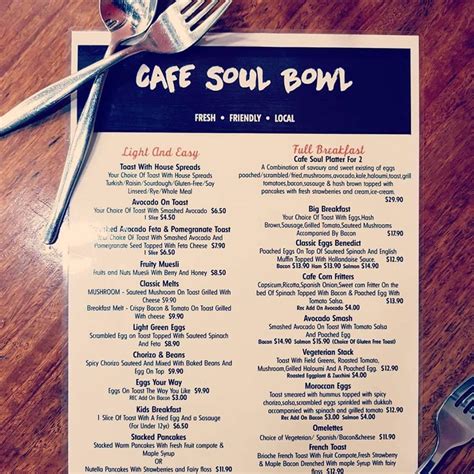 CAFE SOUL BOWL
FRESH • FRIENDLY • LOCAL
Light And Easy
Toast With House Spreads
Your Choice Of Toast With House Spreads
Turkish/Raisin/Sourdough/Gluten-Free/Soy
Linseed/Rye/Whole Meal
Avocado On Toast
Your Choice Of Toast With Smashed Avocado $6.50
1 Slice $4.50
Avocado Feta & Pomegranate Toast
Your Choice Of Toast With Smashed Avocado And
Pomegranate Seed Topped With Feta Cheese $7.90
1 Slice $6.50
Fruity Muesli
Fruits and Nuts Muesli With Berry And Honey $8.50
Classic Melts
MUSHROOM - Sauteed Mushroom On Toast Grilled With
Cheese $9.90
Breakfast Melt - Crispy Bacon & Tomato On Toast Grilled
with Cheese $9.90
Light Green Eggs
Scrambled Egg on Toast Topped With Sauteed Spinach
And Feta $8.90
Chorizo & Beans
Spicy Chorizo Sauteed And Mixed With Baked Beans And
Egg On Toast $9.90
Eggs Your Way
Eggs On Toast The Way You Like $9.90
REC Add On Bacon $3.00
Kids Breakfast
1 Slice Of Toast With A Fried Egg And a Sausage
(For Under 12y) $6.50
Stacked Pancakes
Stacked Warm Pancakes With Fresh Fruit compote &
Maple Syrup
OR
Nutella Pancakes With Strawberries and Fairy floss $11.90
Full Breakfast
Cafe Soul Platter For 2
A Combination of savoury and sweet existing of eggs
poached/scrambled/fried,mushroom,avocado,kale,haloumi,toast,grill
tomatoes,bacon,sasauge & hash brown topped with
pancakes with fresh strawberries and cream,ice-cream.
$29.90
Big Breakfast
Your Choice Of Toast With Eggs,Hash
Brown,Sausage,Grilled Tomato,Sauteed Mushrooms
Accompanied By Bacon $17.90
Classic Eggs Benedict
Poached Eggs On Top Of Sauteed Spinach And English
Muffin Topped With Hallandaise Sauce. $12.90
Bacon $13.90 Ham $13.90 Salmon $14.90
Cafe Corn Fritters
Capsicum,Ricotta,Spanish Onion,Sweet corn Fritter On the
Bed Of Spinach Topped With Bacon & Poached Egg With
Tomato Salsa. $13.90
Rec Add On Avocado $4.00
Avocado Smash
Smashed Avocado On Toast With Tomato Salsa
And Poached Egg
Bacon $14.90 Salmon $15.90 (Choice Of Gluten Free Toast)
Vegeterian Stack
Toast With Field Greens, Roasted Tomato,
Mushroom, Egg And Grilled Haloumi Cheese $14.90
Roasted Eggplant & Zucchini $4.00
Moroccan Eggs
Toast smeared with hummus topped with spicy
chorizo,salsa,scrambled eggs sprinkled with dukkah
accompanied with spinach and grilled tomato $12.90
Rec Add On Avocado $4.00
Omelettes
Choice of Vegeterian/ Spanish/Bacon&cheese $11.90
French Toast
Brioche French Toast With Fruit Compote/ Bacon &
Maple Bacon Drenched With Maple Syrup, fresh Strawberries
& Fairy Floss $12.90